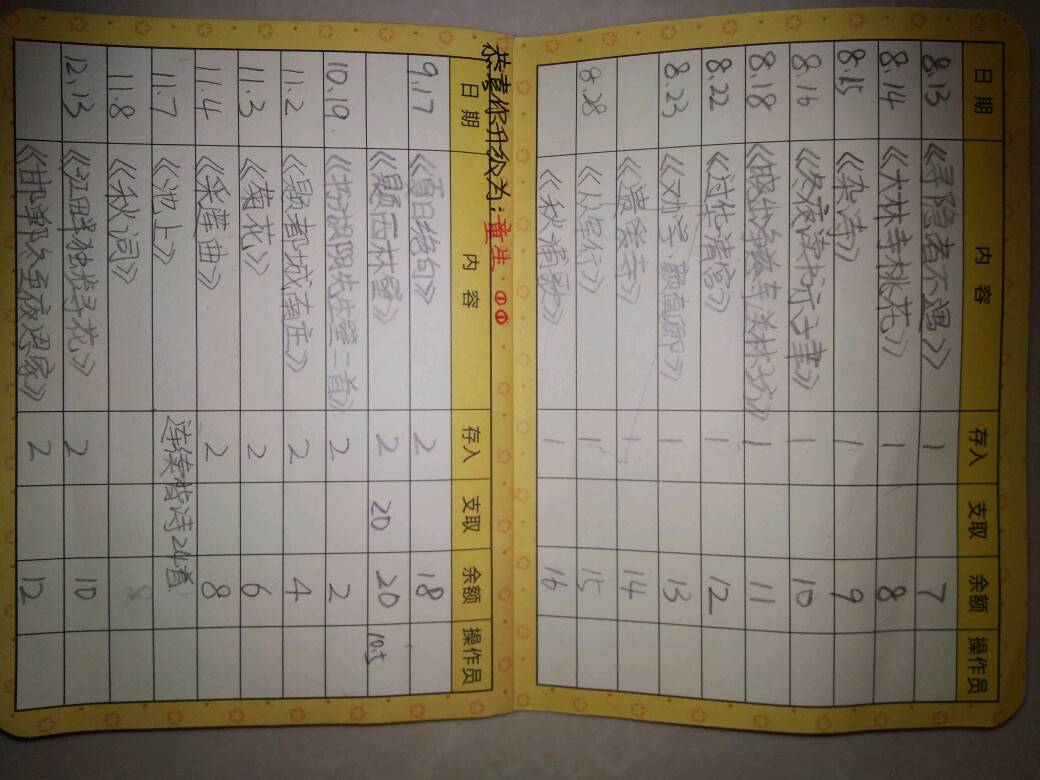 日期 内容 存入 支取 余额 操作员
8.13 《寻隐者不遇》 1 7
8.14 《大林寺桃花》 1 8
8.15 《杂诗》 1 9
8.16 《冬夜读书示子聿》 1 10
8.18 1 11
8.22 《过华清宫》 1 12
8.23 《劝学·颜真卿》 1 13
1 14
8.28 《从军行》 1 15
《秋浦歌》 1 16
恭喜你升级为:童生
日期 内容 存入 支取 余额 操作员
9.17 《夏日绝句》 2 18
《题西林壁》 2 20 20
10.19 《书湖阴先生壁二首》 2 2
11.2 《题都城南庄》 2 4
11.3 《菊花》 2 6
11.4 《采莲曲》 2 8
11.7 《池上》 连续背诗24首
11.8 《秋词》
12.13 《江畔独步寻花》 2 10
《邯郸冬至夜思家》 2 12